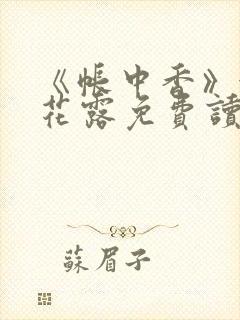 《帳中香》
花露免費讀
蘇眉子